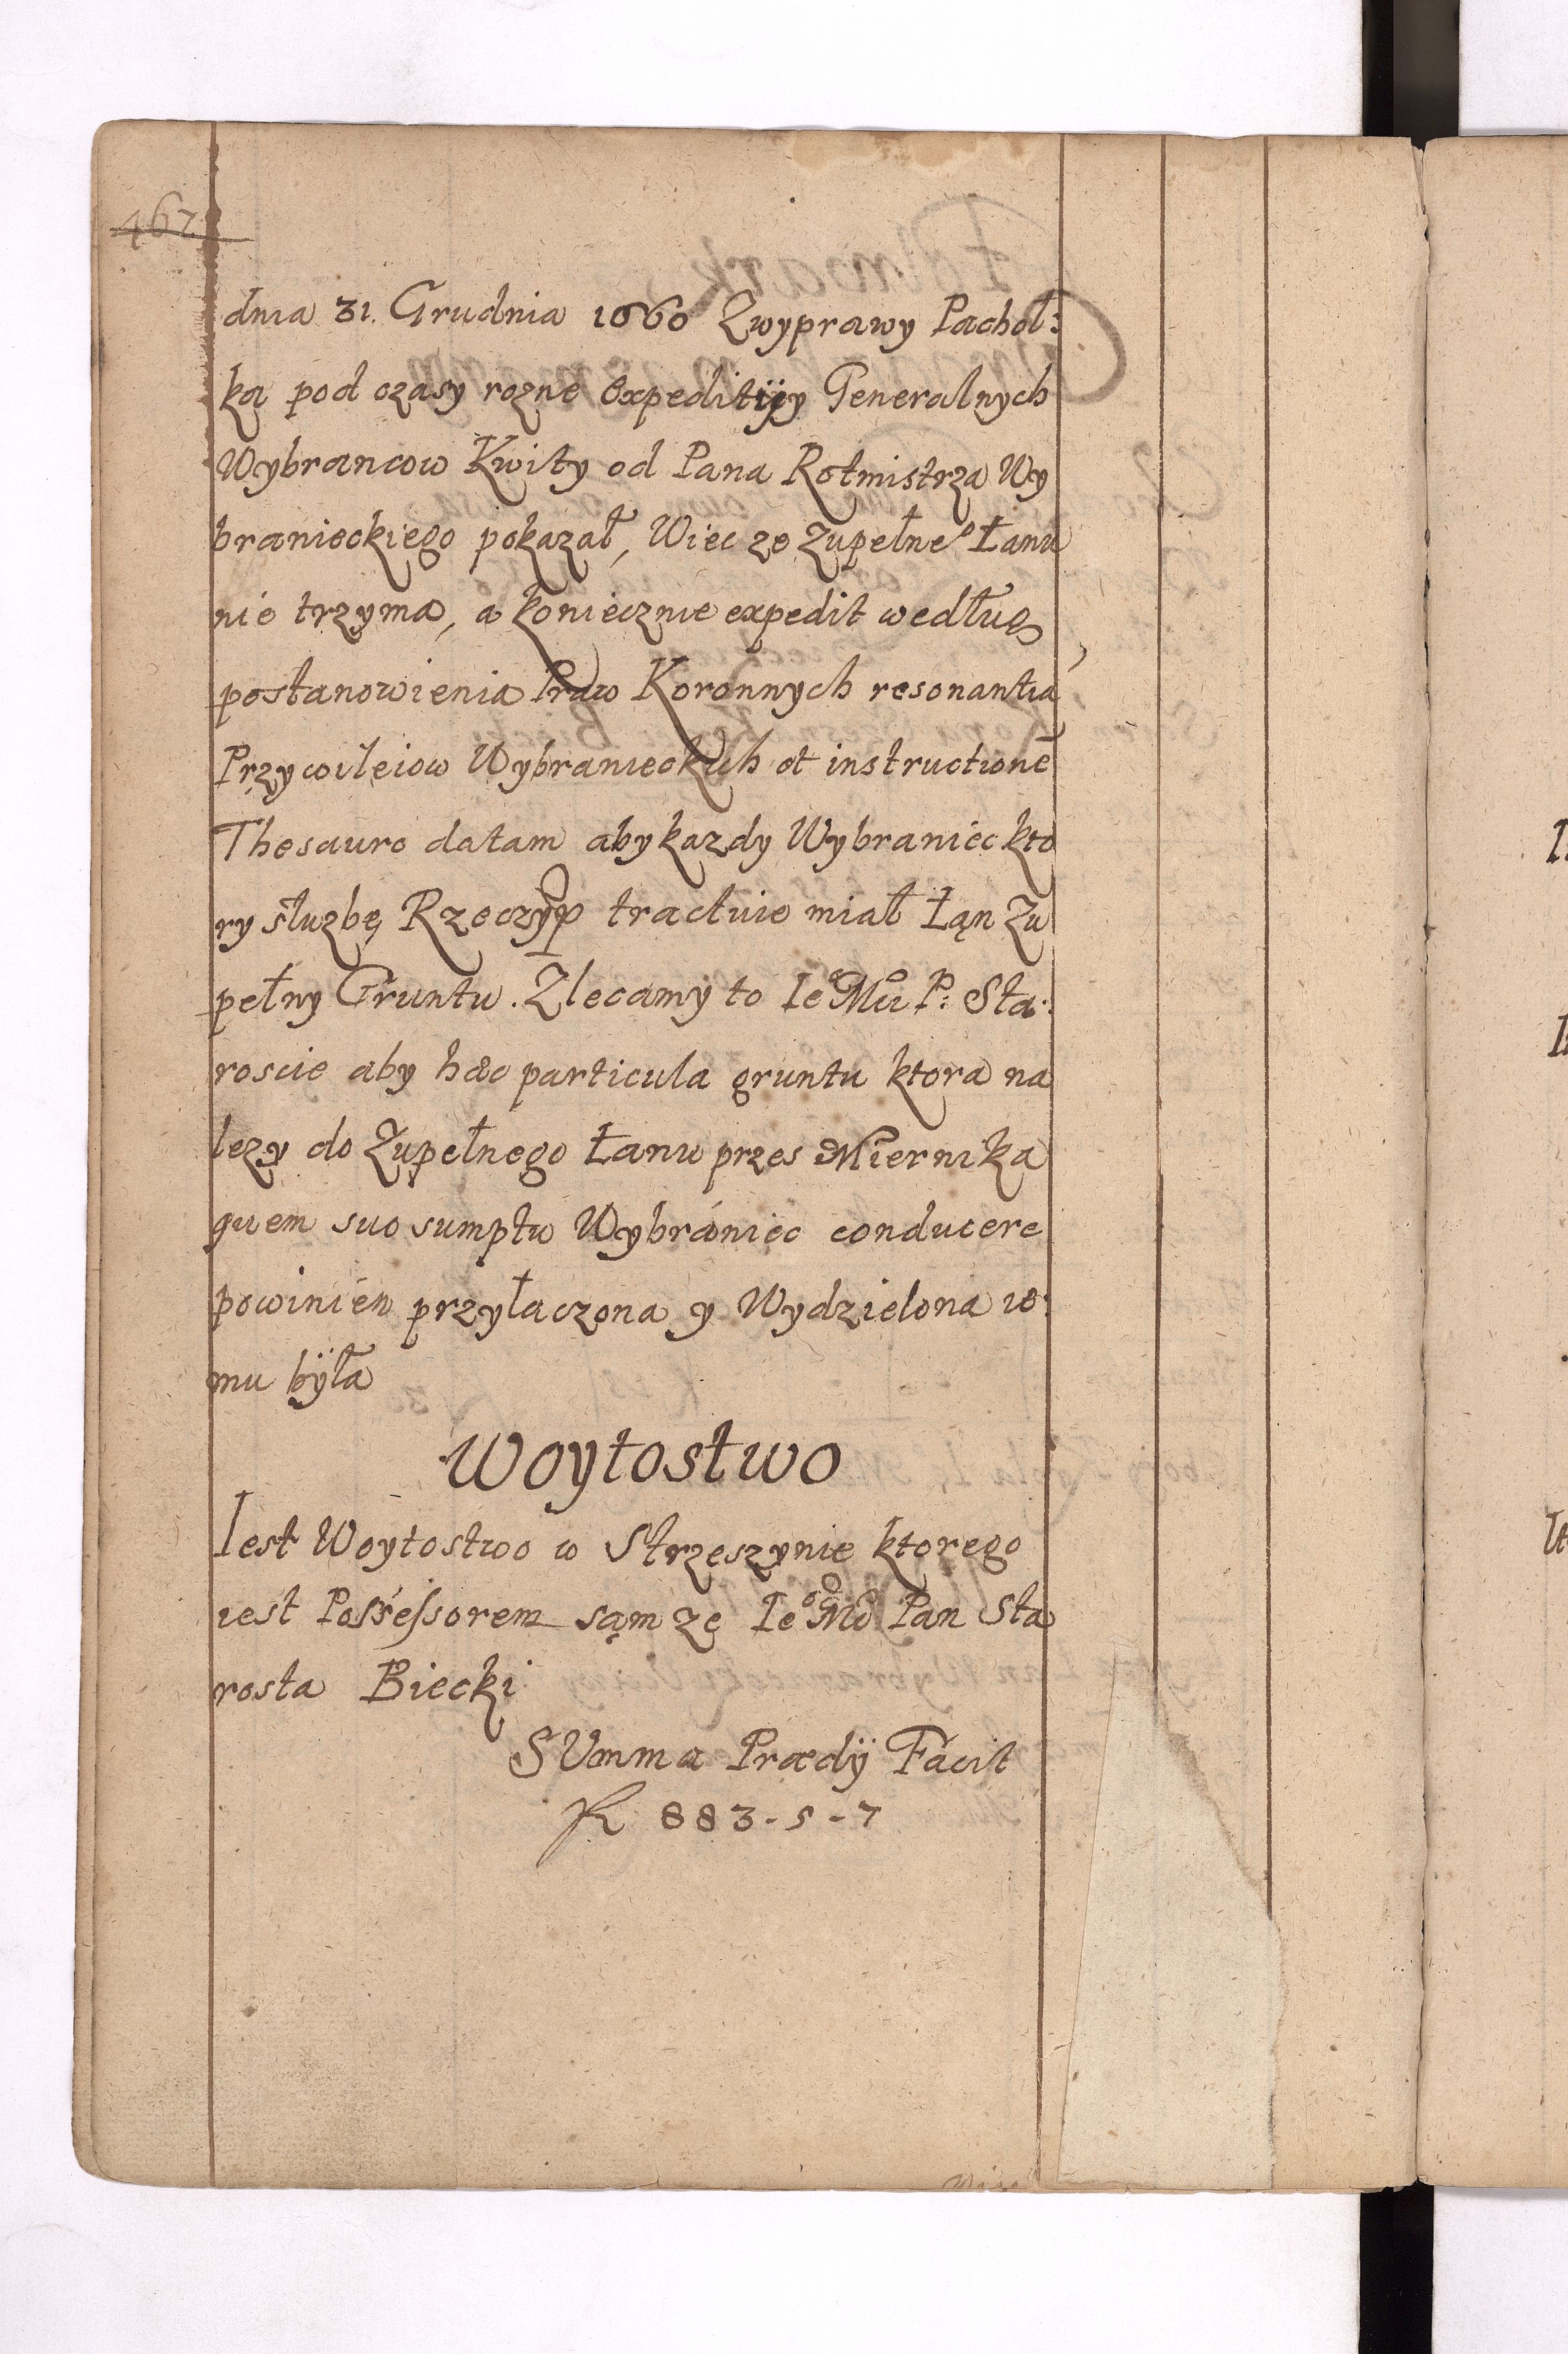 467
dnia 31. Grudnia 1660 Zwyprawy Pachoł:
ka pod czasy rozne Expeditiÿy Generalnych
Wybrancow Kwity od Pana Rotmistrza Wy
branieckiego pokazał, Wiec ze Zupełneº Łanu
nie trzyma, a koniecznie expedit według
postanowienia Praw Koronnych resonantia
Przywileiow Wybranieckich et instructionē
Thesauro datam aby kazdy Wybraniec kto
ry słuzbę Rzeczyp tractuie miał Łąn Zu
pełny Gruntu. Zlecamÿ to Ieº Mci P: Sta:
roscie aby hæc particula gruntu ktora na
lezy do Zupełnego Łanu przes Miernika
quem suo sumptu Wybrániec conducere
powinien przyłaczona y Wydzielona ie:
mu bÿła
Woytostwo
Iest Woytostwo w Strzeszynie ktorego
iest Possessorem sąm ze Ieº Mº Pan Sta
rosta Biecki
SUmma Prædÿ Facit
R 883-5-7